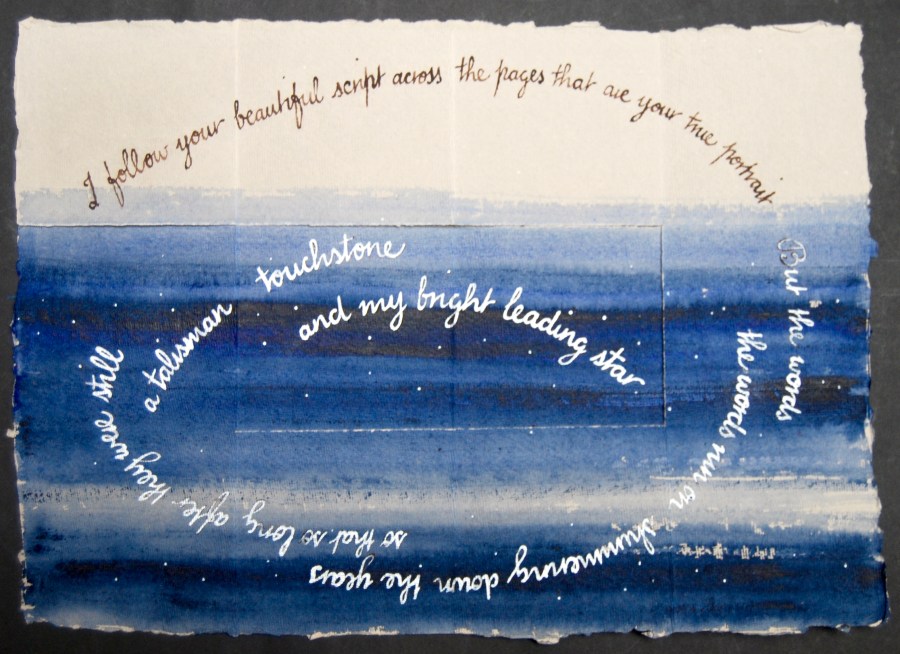 I follow your beautiful script across the pages that are your true portrait
But the words
the words run on shimmering down the years
so that so long after they were still
a talisman touchstone
and my bright leading star